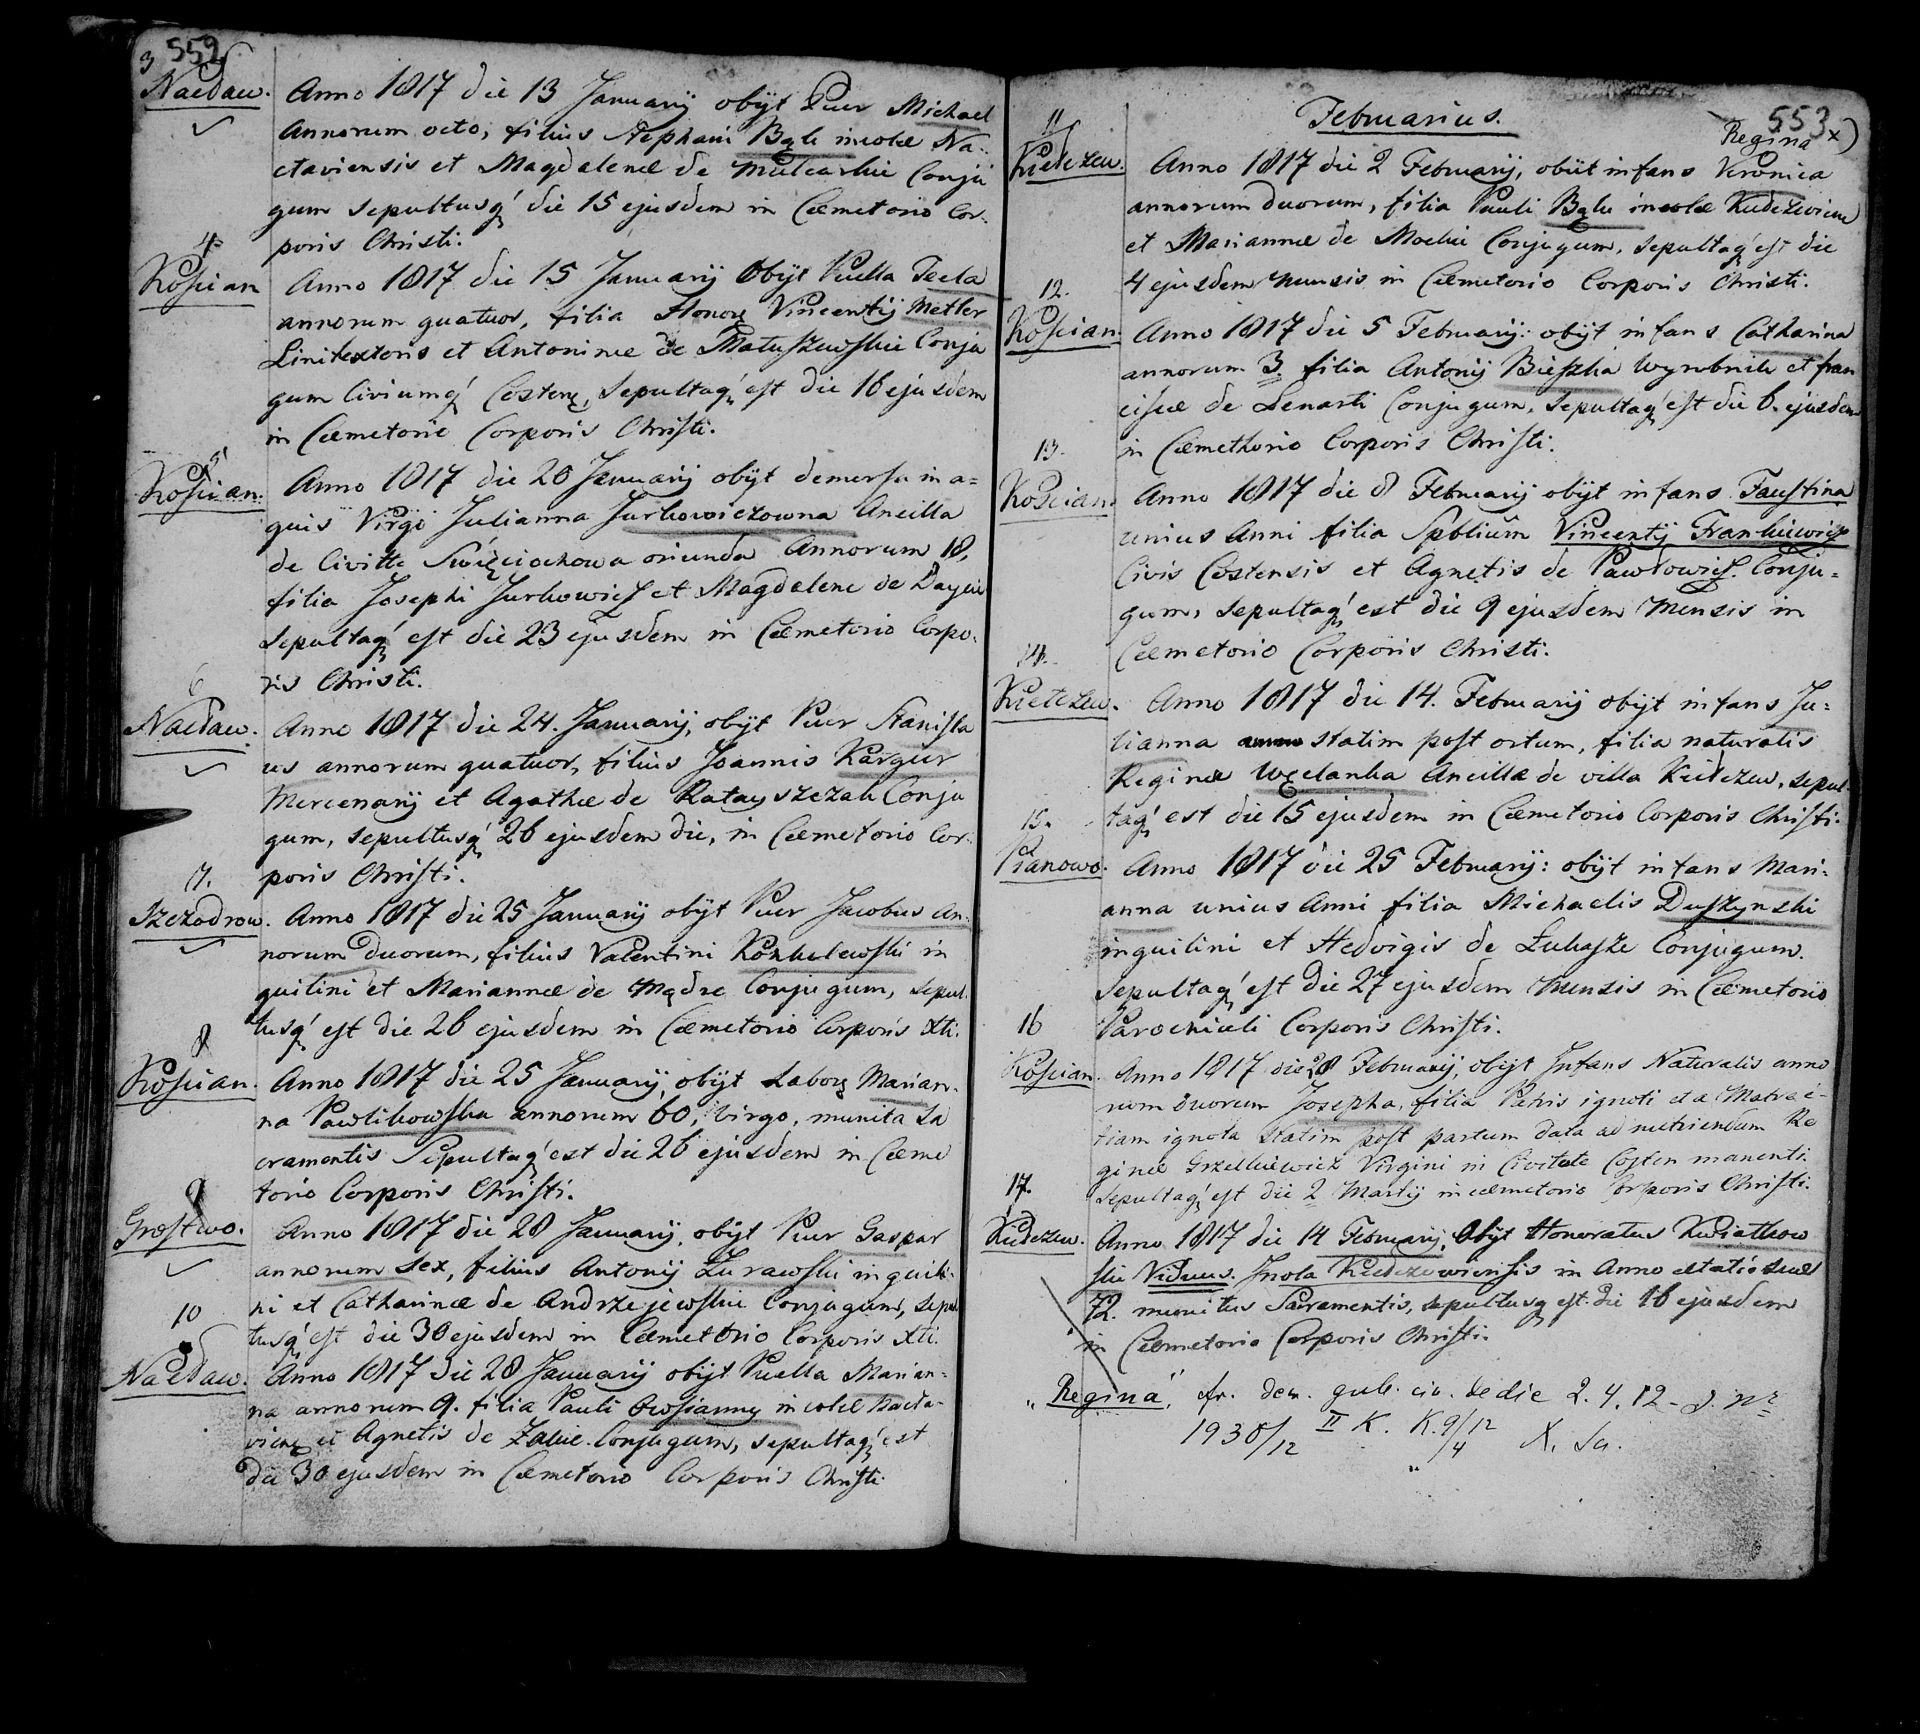 552
3
Nacław.
Anno 1817 die 13 Januarij obijt Puer Michael
annorum octo, filius Stephani Bąk incolæ Na-
ctaviensis et Magdalenæ de Conju
gum sepultusq́ die 15 ejusdem in Cæmetorio Cor-
poris Christi.
4
Kościan
Anno 1817 die 15 Januarij Obijt Puella Tecla
annorum quatuor, filia Honor Vincentij Metler
Linitextoris et Antoninæ de Matuszewskie Conju
gum Civiumq́ Costen, Sepultaq́ est die 16 ejusdem
in Cæmetorio Corporis Christi.
5
Kościan.
Anno 1817 die 20 Januarij obijt demersa in a=
quis Virgo Julianna Jurkowiczowna Ancilla
de Civitte Swięciochowa oriunda Annorum 18,
filia Josephi Jurkowicz et Magdalene de
Sepultaq́ est die 23 ejusdem in Cæmetorio Corpo-
ris Christi.
6
Nacław.
Anno 1817 die 24. Januarij, obijt Puer Stanisla
us annorum quatuor, filius Joannis Kargur
Mercenarij et Agathæ de Conju
gum, sepultusq́ 26 ejusdem die, in Cæmetorio Cor-
poris Christi.
7.
Szczodrow.
Anno 1817 die 25 Januarij obijt Puer Jacobus An-
norum Duorum, filius Valentini in
quilini et Mariannæ de Mądre Conjugum, sepul-
tusq́ est die 26 ejusdem in Cæmetorio Corporis Xti.
8
Kościan.
Anno 1817 die 25 Januarij, obijt Labor Marian-
na Pawlikowska annorum 60, virgo, munita Sa
cramentis Sepultaq́ est die 26 ejusdem in Cæme
torio Corporis Christi.
9
Anno 1817 die 28 Januarij, obijt Puer Gaspar
annorum sex, filius Antonij Żurawski inquili-
ni et Catharinæ de Andrzejewskie Conjugum, sepul
tusq́ est die 30 ejusdem in Cæmetorio Corporis Xti.
10
Nacław.
Anno 1817 die 28 Januarij obijt Puella Marian-
na annorum 9. filia Pauli Owsianny incolæ Nacta-
vien et Agnetis de Conjugum, sepultaq́ est
die 30 ejusdem in Cæmetorio Corporis Christi.
553
Februarius.
Regina x)
11
Kiełczew.
Anno 1817 die 2 Februarij, obiit infans Veronica
annorum duorum, filia Pauli Bąk incolæ
et Mariannæ de Conjugum, sepultaq́ est die
4 ejusdem mensis in Cæmetorio Corporis Christi.
12.
Kościan.
Anno 1817 die 5 Februarij: obijt infans Catharina
annorum 3, filia Antonij Bieszka Wyrobnik et fran
ciscæ de Lenarti Conjugum, sepultaq́ est die 6. ejusdem
in Cæmethorio Corporis Christi.
13.
Kościan.
Anno 1817 die 8 Februarij obijt infans Faustina
unius Anni filia Spblium Vincentij Frankiewicz
Civis Costensis et Agnetis de Pawłowicz Conju=
gum, sepultaq́ est die 9 ejusdem Mensis in
Cæmetorio Corporis Christi.
14.
Kiełczew.
Anno 1817 die 14. Februarij obijt infans Ju=
lianna statim post ortum, filia naturalis
Reginæ Węclanka Ancillæ de villa Kiełczew, sepul-
taq́ est die 15 ejusdem in Cæmetorio Corporis Christi.
15.
Pianowo.
Anno 1817 die 25 Februarij: obijt infans Mari-
anna unius Anni filia Michaelis Duszynski
inquilini et Hedvigis de Łukasze Conjugum.
Sepultaq́ est die 27 ejusdem Mensis in Cæmetorio
Parochiali Corporis Christi.
16
Kościan.
Anno 1817 die 28 Februarij, obijt Infans Naturalis anno
rum duorum Josepha, filia Patris ignoti et a Matre e-
tiam ignota statim post partum data ad nutriendum Re
ginæ Grzelkiewicz Virgini in Civitate Costen manenti.
Sepultaq́ est die 2 Martij in cæmetorio Corporis Christi.
17.
Kiełczew.
Anno 1817 die 14 Februarij, Obijt Honoratus Kwiatkow
ski Viduus. Incola in Anno ætatis suæ
72. munitus Sacramentis, sepultusq est die 16 ejusdem
in Cæmetorio Corporis Christi.
"Regina", die 2. 4. 12
1938/12 II K. K. 9/12